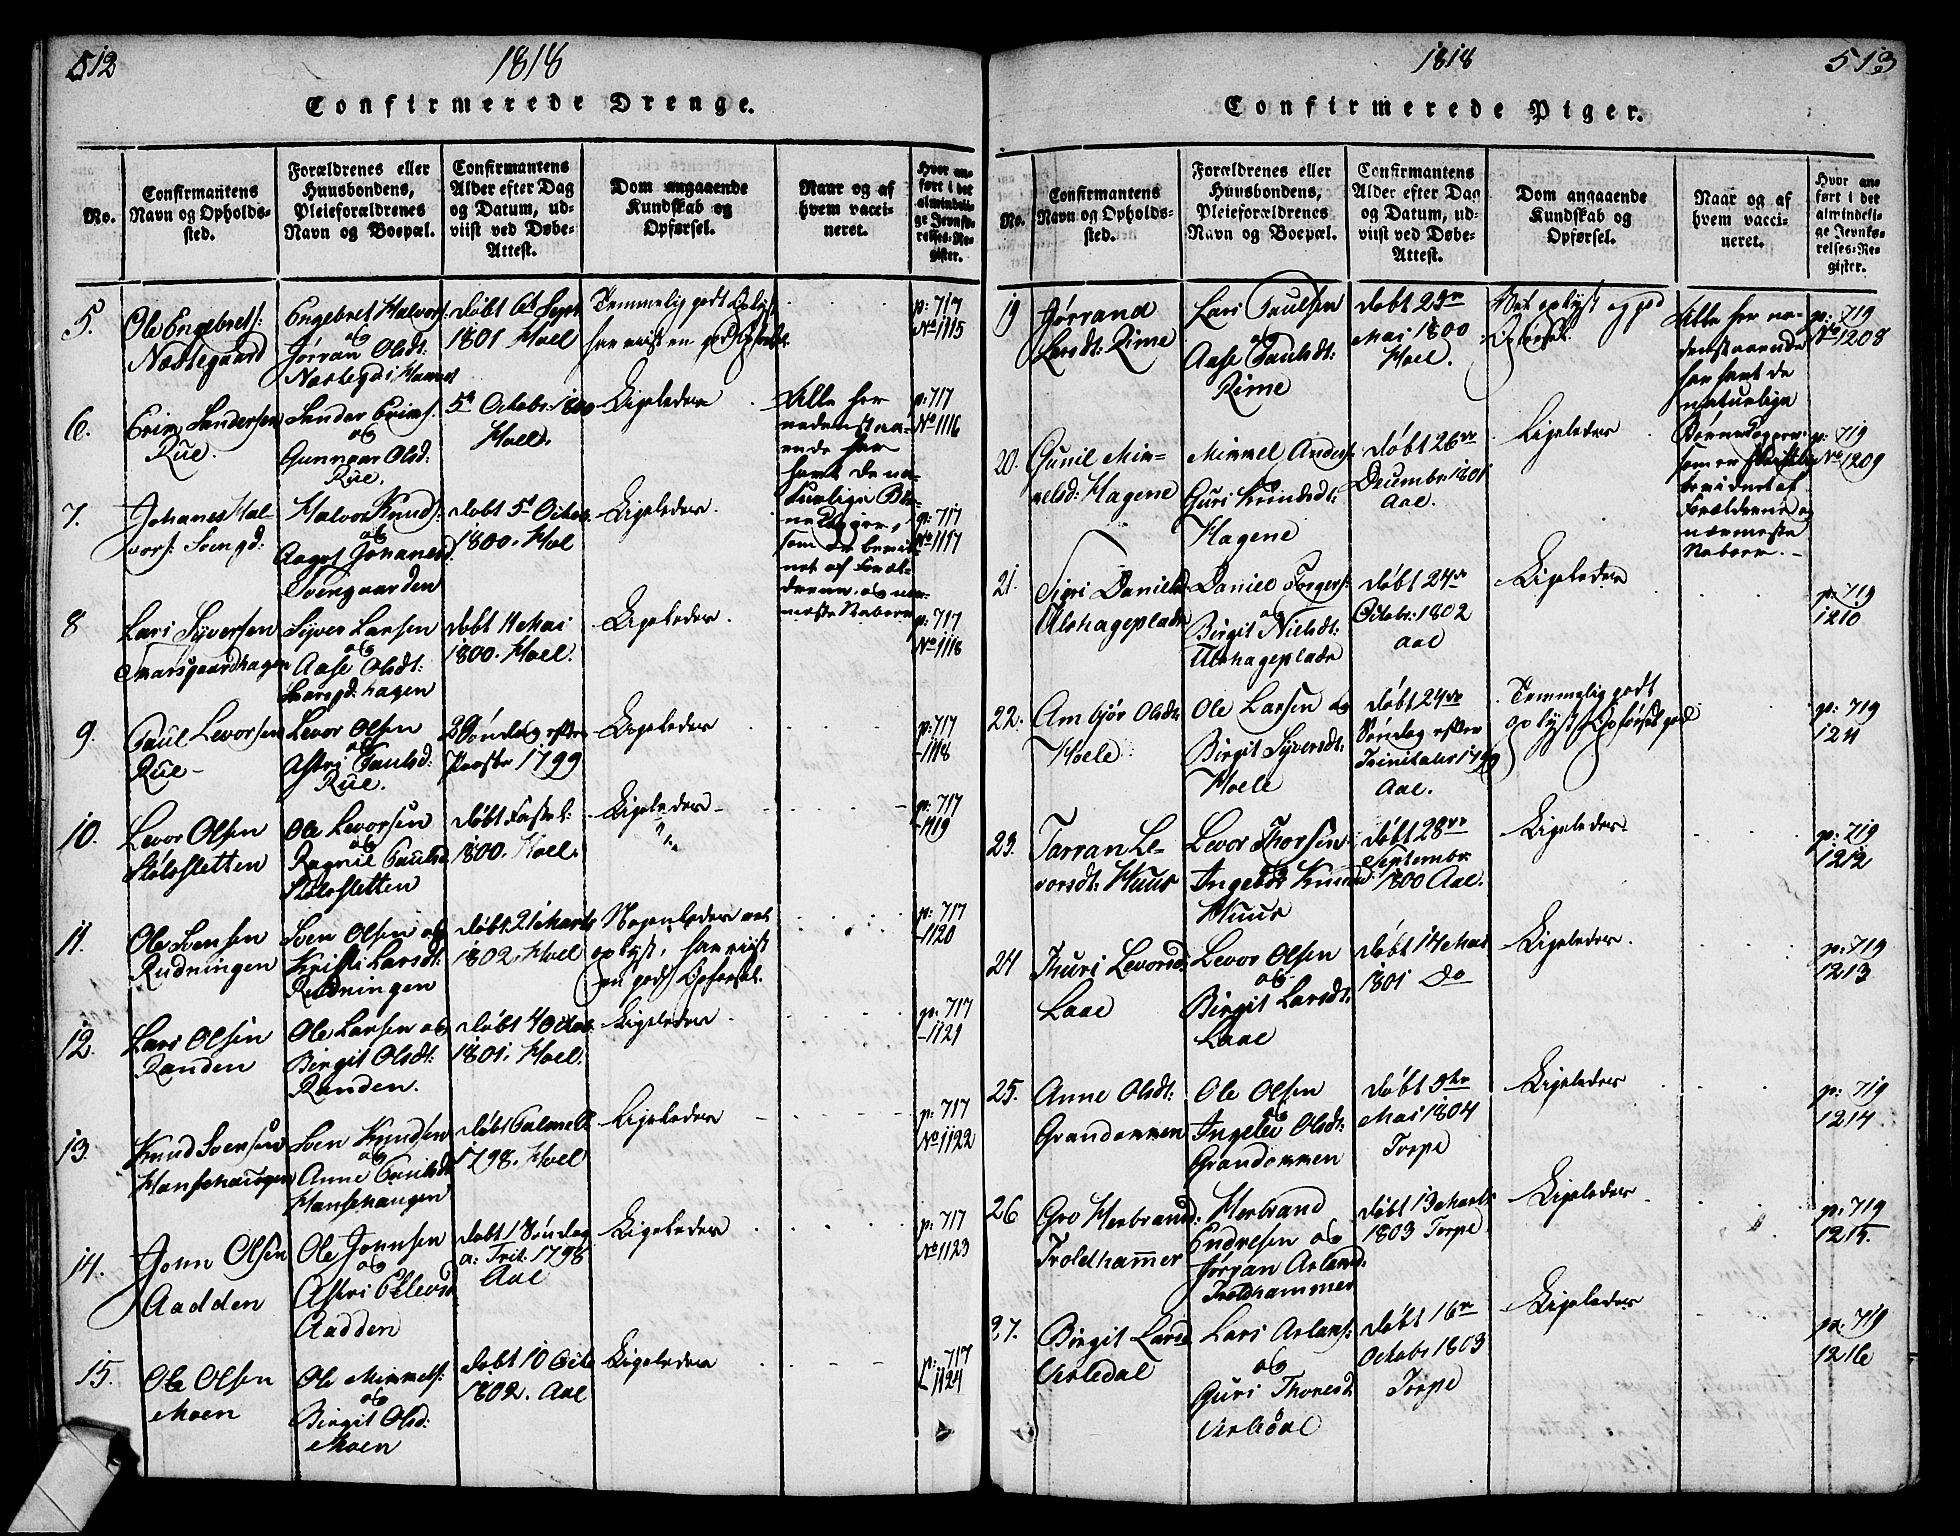 512
1818
Confirmerede Drenge.
No.
Confirmantens
Navn og Opholds-
sted.
Forældrenes eller
Huusbondens,
Pleieforældrenes
Navn og Boepæl.
Confirmantens
Alder efter Dag
og Datum, ud-
viist ved Døbe-
Attest.
Dom angaaende
Kundskab og
Opførsel.
Naar og af
hvem vacci-
neret.
Hvor an-
ført i det
almindeli-
ge Jevnfø-
relses-Re-
gister.
5.
Ole Engebrets:
Næstegaard
Engebret Halvors:
og
Jørran Olsdt:
Næstegd i Hamer
døbt 6t Sept
1801 Hoel
Temmelig godt Oplyst
har viist en god Opførsel
p: 717
No 1115
6.
Erin Sandersen
Rue.
Sander Erins:
og
Gunnar Olsd:
Rue.
5t Octobr: 1800
Hoel.
Ligeledes
Alle her
nedenstaa-
ende har
havt de na-
turlige Bør-
ne Kopper,
som er bevid-
net af Foræl-
drene og nær-
meste Naboer
p: 717
No 1116
7.
Johanes Hal-
vors: Svengd:
Halvor Knuds:
og
Aagot Johanesd:
Svengaarden
døbt 5t Octob.
1800. Hoel
Ligeledes.
p: 717
No 1117
8
Lars Syversen
Snarsgaardhagen
Syver Larsen
og
Aase Olsdt:
Snarsgd: hagen
døbt 11 Mai
1800. Hoel.
Ligeledes.
p: 717
No 1118
9.
Paul Levorsen
Rue-
Levor Olsen
og
Astri Paulsd:
Rue.
2 Søndag efter
Paaske 1799
Ligeledes
p: 717
-1118
10.
Levor Olsen
Stølesletten
Ole Levorsen
og
Ragnil Paulsd
Stølesletten
døbt Fastel:
1800. Hoel.
Ligeledes-
p: 717
-1119
11.
Ole Svensen
Rudningen
Sven Olsen og
Kristi Larsdt:
Rudningen
døbt 21 Marts
1802, Hoel
Nogenledes vel
oplyst, har viist
en god Opførsel.
p: 717
-1120
12.
Lars Olsen
Randen
Ole Larsen og
Birgit Olsdt:
Randen.
døbt 4 Octob.
1801. Hoel
Ligeledes
p: 717
-1121
13.
Knud Svensen
Hansehaugen
Sven Knudsen
og
Anne Paulsdt
Hansehaugen
døbt Palme
1798. Hoel
Ligeledes
p: 717
No 1122
14.
John Olsen
Aadden
Ole Johnsen
og
Astri Ellevsd:
Aadden
døbt 1 Søndag
a: Trit. 1798
Aal
Ligeledes
p: 717
No 1123
15.
Ole Olsen
Moen
Ole Mimmels:
og
Birgit Olsd:
Moen
døbt 10 Octb
1802. Aal
Ligeledes
p: 717
1124
1818
513
Confirmerede Piger.
No.
Confirmantens
Navn og Opholds-
sted.
Forældrenes eller
Huusbondens,
Pleieforældrenes
Navn og Boepæl.
Confirmantens
Alder efter Dag
og Datum, ud-
viist ved Døbe-
Attest.
Dom angaaende
Kundskab og
Opførsel.
Naar og af
hvem vacci-
neret.
Hvor an-
ført i det
almindeli-
ge Jevnfø-
relses-Re-
gister.
19
Jørrand
Larsdt: Rime
Lars Paulsen
og
Aase Paulsdt:
Rime
døbt 23de
Mai 1800
Hoel.
Vel oplyst og god
Opførsel.
Alle her ne-
denstaaende
har havt de
naturlige
Børnekopper
som er
bevidnet af
Forældrene og
nærmeste
Naboer.-
p: 719
No 1208
20.
Gunil Mim-
melsd: Hagene
Mimmel Anders:
Guri Knudsdt:
Hagene
døbt 26de
Decembr: 1801
Aal.
Ligeledes
p: 719
No 1209
21.
Sigri Danielsd
Ulshageplads
Daniel Torgers:
og
Birgit Nielsdt:
Ulshageplads
døbt 24de
Octobr: 1802
Aal
Ligeledes
p: 719
1210
22.
Ambjør Olsdt
Hoele
Ole Larsen og
Birgit Syversdt:
Hoele
døbt 24de
Søndag efter
Trinitatis 1799
Aal.
Temmelig godt
oplyst Opførsel god
p: 719
1211
23.
Tarran Le-
vorsdt: Huus
Levor Thorsen
Ingebor Knudsd:
Huus
døbt 28de
Septembr:
1800 Aal.
Ligeledes
p: 719
1212
24
Thuri Levorsdt
Laae
Levor Olsen
og
Birgit Larsdt:
Laae
døbt 14 Mai
1801 Do
Ligeledes.
p: 719
1213
25.
Anne Olsdt:
Grandemmen
Ole Olsen
og
Ingelev Olsdt:
Grandemmen
døbt 3die
Mai 1804
Torpe
Ligeledes
p: 719
1214
26
Gro Herbrandsd:
Troldhammer
Herbrand
Endresen og
Jørran Arland:
Troldhammer
døbt 13 Marts
1803 Torpe
Ligeledes
p: 719
1215.
27.
Birgit Larsd
Verledal
Lars Erlans:
og
Guri Thoresd
Verledal
døbt 16de
Octobr 1803
Torpe
Ligeledes
p: 719
1216